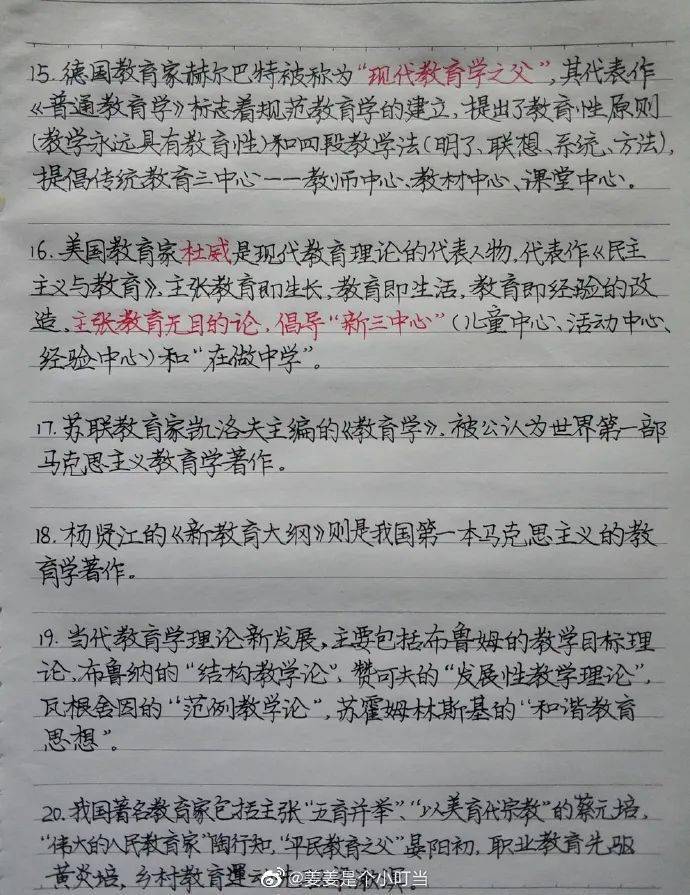 15. 德国教育家赫尔巴特被称为“现代教育学之父”，其代表作
《普通教育学》标志着规范教育学的建立，提出了教育性原则
(教学永远具有教育性)和四段教学法(明了、联想、系统、方法)，
提倡传统教育三中心——教师中心、教材中心、课堂中心。
16. 美国教育家杜威是现代教育理论的代表人物，代表作《民主
主义与教育》，主张教育即生长，教育即生活，教育即经验的改
造，主张教育无目的论，倡导“新三中心”(儿童中心、活动中心、
经验中心)和“在做中学”。
17. 苏联教育家凯洛夫主编的《教育学》，被公认为世界第一部
马克思主义教育学著作。
18. 杨贤江的《新教育大纲》则是我国第一本马克思主义的教
育学著作。
19. 当代教育学理论新发展，主要包括布鲁姆的教学目标理
论、布鲁纳的“结构教学论”，赞可夫的“发展性教学理论”，
瓦根舍因的“范例教学论”，苏霍姆林斯基的“和谐教育
思想”。
20. 我国著名教育家包括主张“五育并举”、“以美育代宗教”的蔡元培，
“伟大的人民教育家”陶行知，“平民教育之父”晏阳初，职业教育先驱
黄炎培，乡村教育運
@姜姜是个小叮当